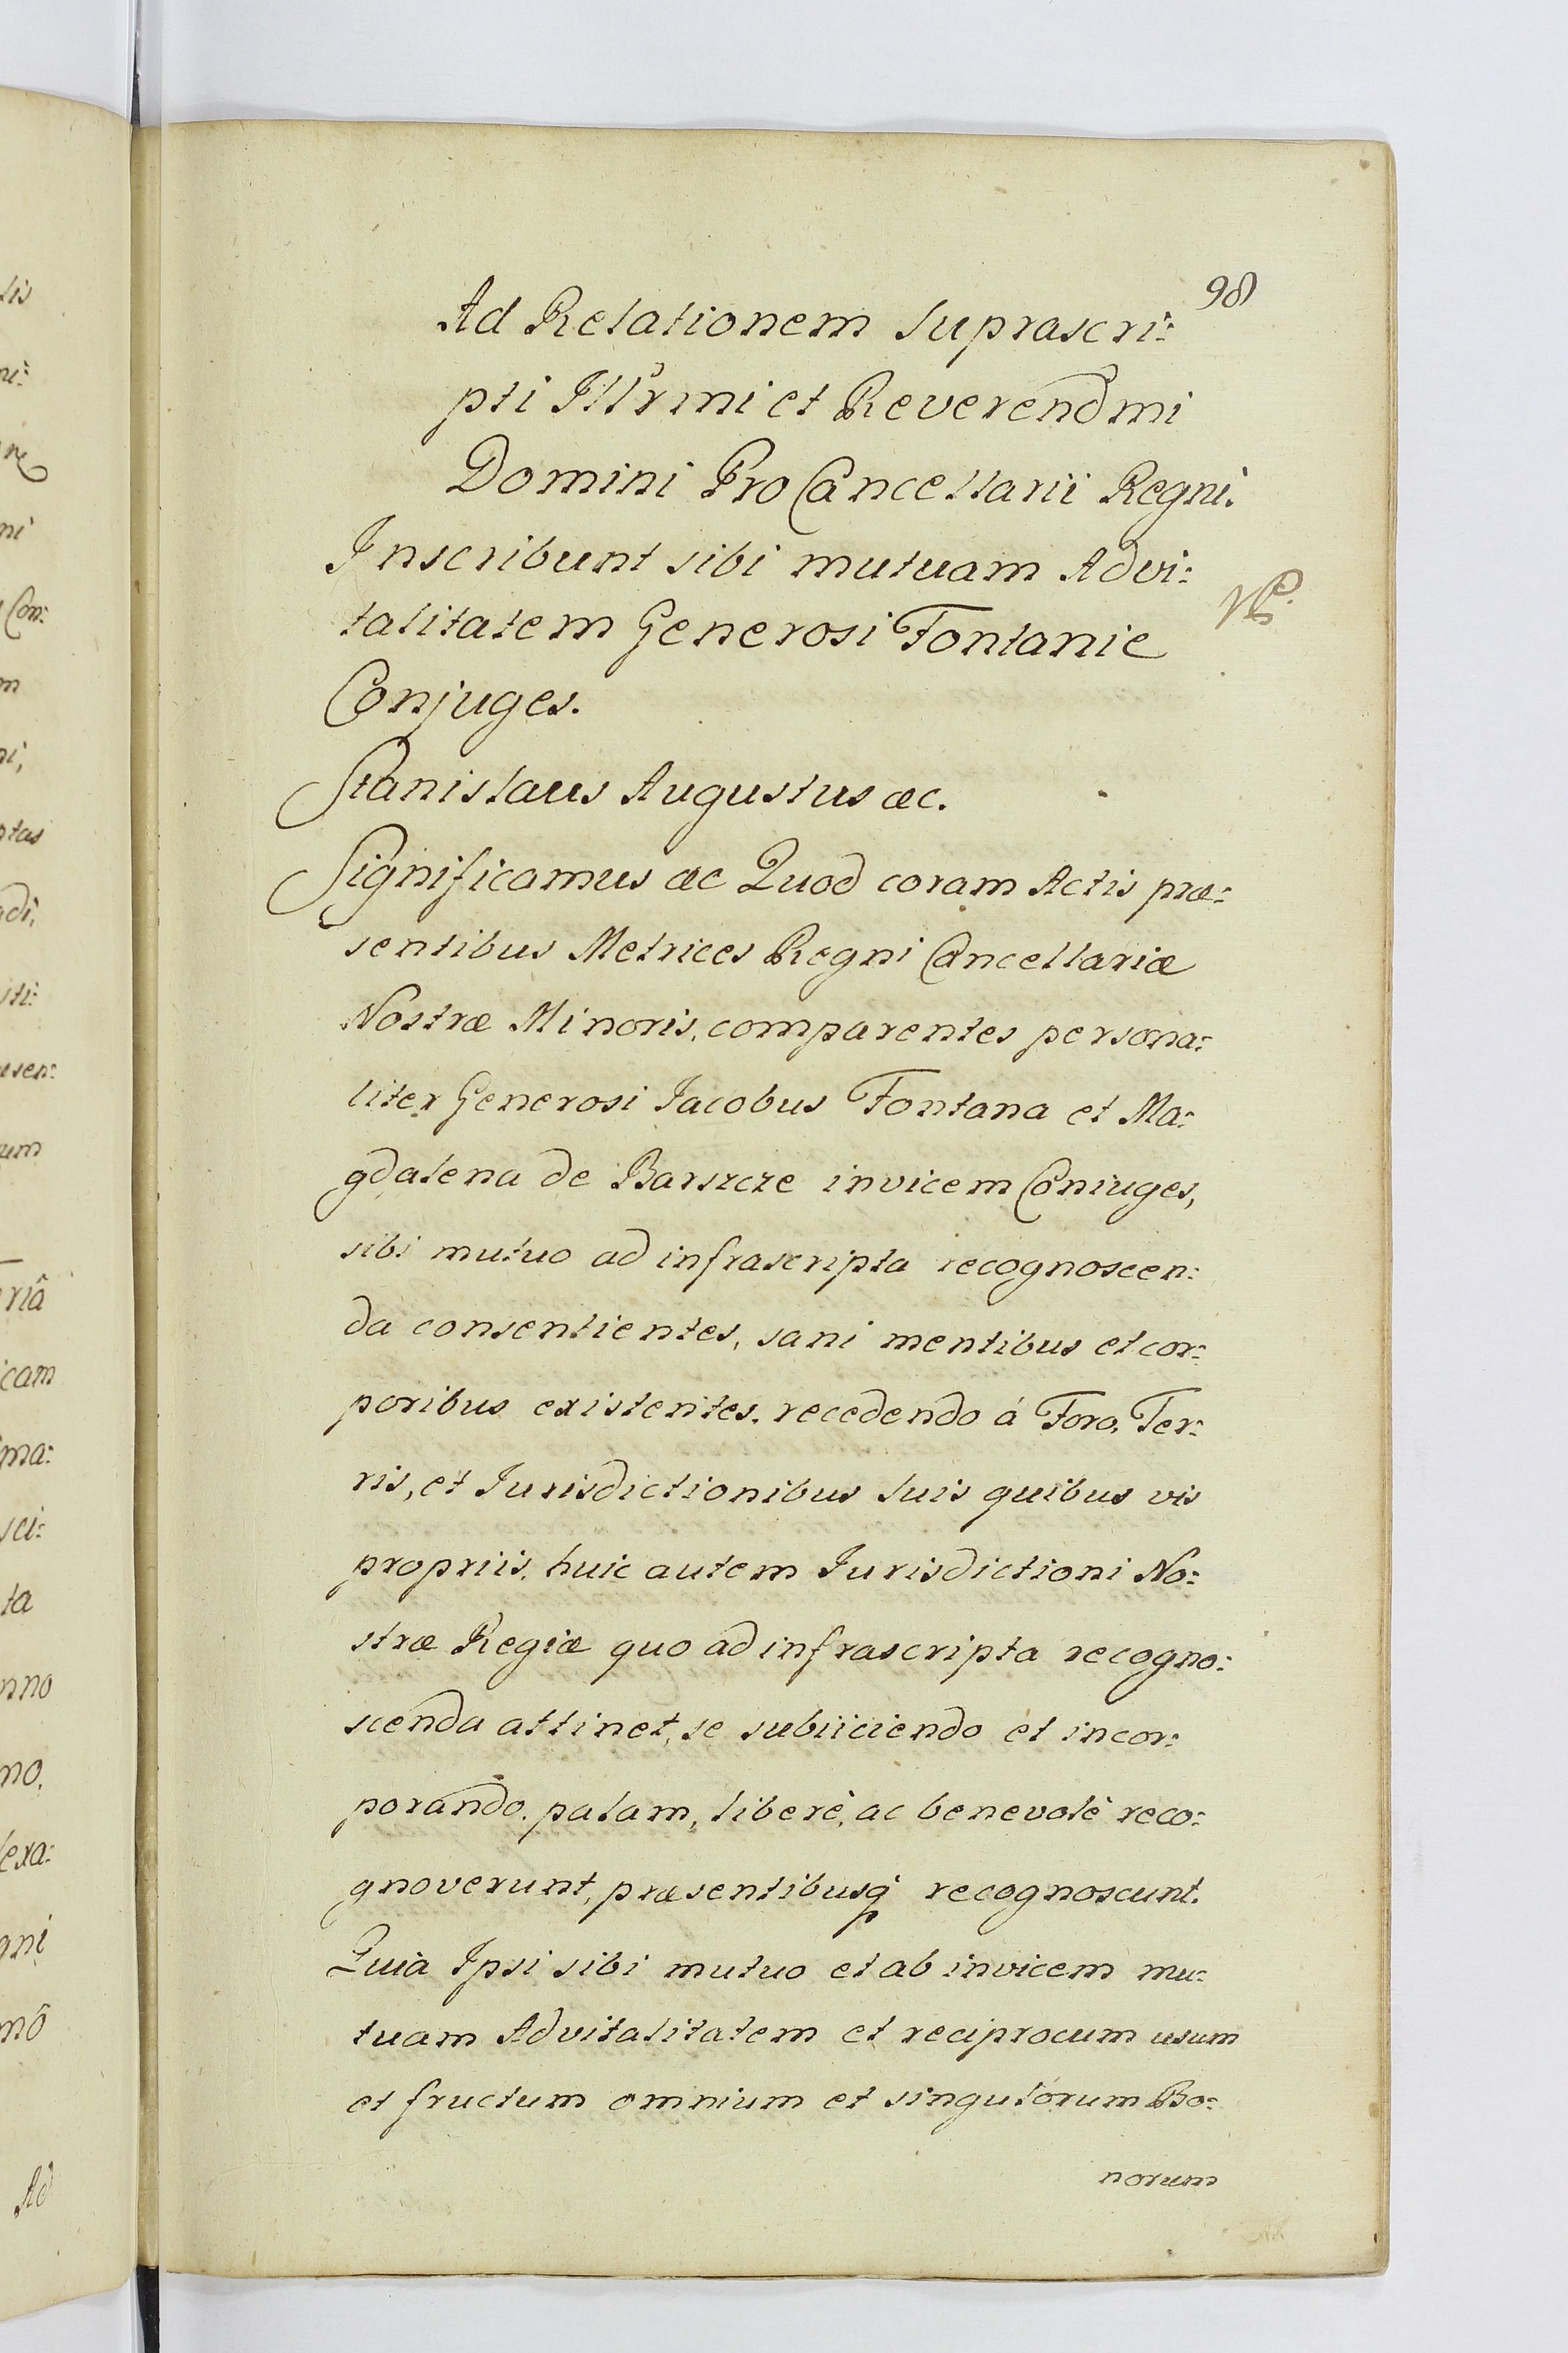 98
Ad Relationem suprascri:
pti Illrmi et Reverendmi
Domini ProCancellarii Regni.
Inscribunt sibi mutuam Advi:
talitatem Generosi Fontanie
Conjuges.
Stanislaus Augustus æc.
Significamus æc Quod coram Actis præ:
sentibus Metrices Regni Cancellariæ
Nostræ Minoris, comparentes persona:
liter Generosi Iacobus Fontana et Ma:
gdalena de Barszcze invicem Coniuges,
sibi mutuo ad infrascripta recognoscen:
da consentientes, sani mentibus et cor:
poribus existentes, recedendo á Foro, Ter:
ris, et Iurisdictionibus suis quibus vis
propriis, huic autem Iurisdictioni No:
stræ Regiæ quo ad infrascripta recogno:
scenda attinet, se subiiciendo et incor:
porando, palam, liberè, ac benevolè reco:
gnoverunt, præsentibusq recognoscunt.
Quia Ipsi sibi mutuo et ab invicem mu:
tuam Advitalitatem et reciprocum usum
et fructum omnium et singulorum Bo:
norum
tis
ni:
re
ni
Con:
m
ni,
ptas
adi,
sti:
esen:
rum
riâ
icam
ma:
sci:
ta
nno
mo,
lexa:
gni
mô
Ad